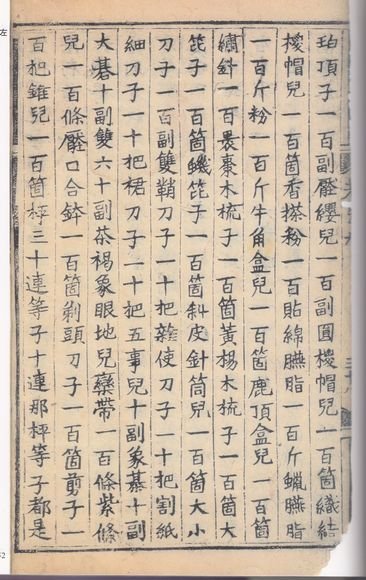 珀頂子一百副纓兒一副圓椶帽兒一百箇織結
椶帽兒一百箇香搽粉一百貼綿臙脂一百斤蠟臙脂
一百斤粉一百斤牛角盒兒一百箇鹿頂盒兒一百箇
繡針一百裹棗木梳子一百箇黃楊木梳子一百箇大
笓子一百箇蟣笓子一百箇斜皮針筒兒一百箇大小
刀子一百副雙鞘刀子一十把雜使刀子一十把割紙
細刀子一十把裙刀子一十把五事兒十副象碁十副
大碁十副雙六十副茶褐象眼地兒欒帶一百條紫條
兒一百條口合鉢一百箇剃頭刀子一百箇剪子一
百把錐兒一百箇秤三十連等子十連那秤等子都是
左